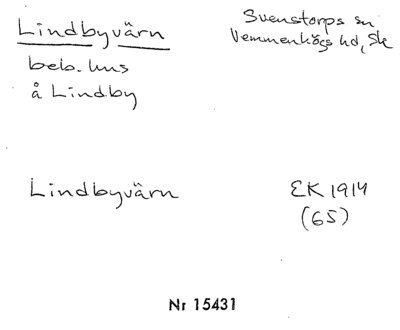 Lindbyvärn
Svenstorps sn
Vemmenhögs hd, Sk
beb. hus
å Lindby
Lindbyvärn
EK 1914
(65)
Nr 15431